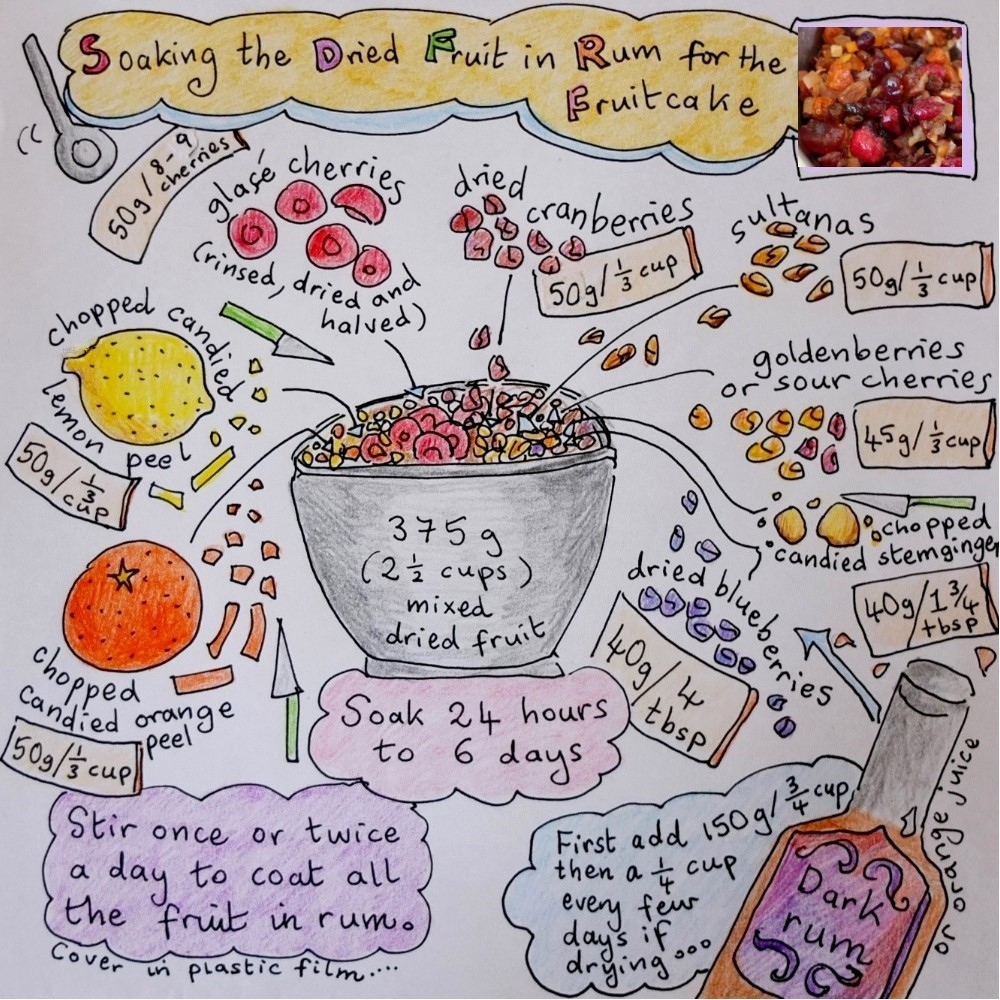 Soaking the Dried Fruit in Rum for the
Fruitcake
50g/8-9
cherries
glasé cherries
(rinsed, dried and
halved)
dried
cranberries
50g/⅓ cup
sultanas
50g/⅓ cup
chopped candied
lemon peel
50g/⅓
cup
goldenberries
or sour cherries
45g/⅓ cup
chopped
candied stemginger
40g/1¾
tbsp
375g
(2½ cups)
mixed
dried fruit
dried blueberries
40g/4
tbsp
chopped
candied orange
peel
50g/⅓ cup
Soak 24 hours
to 6 days
Stir once or twice
a day to coat all
the fruit in rum.
Cover in plastic film....
First add 150g/¾ cup
then a ¼ cup
every few
days if
drying...
Dark
rum
or orange juice